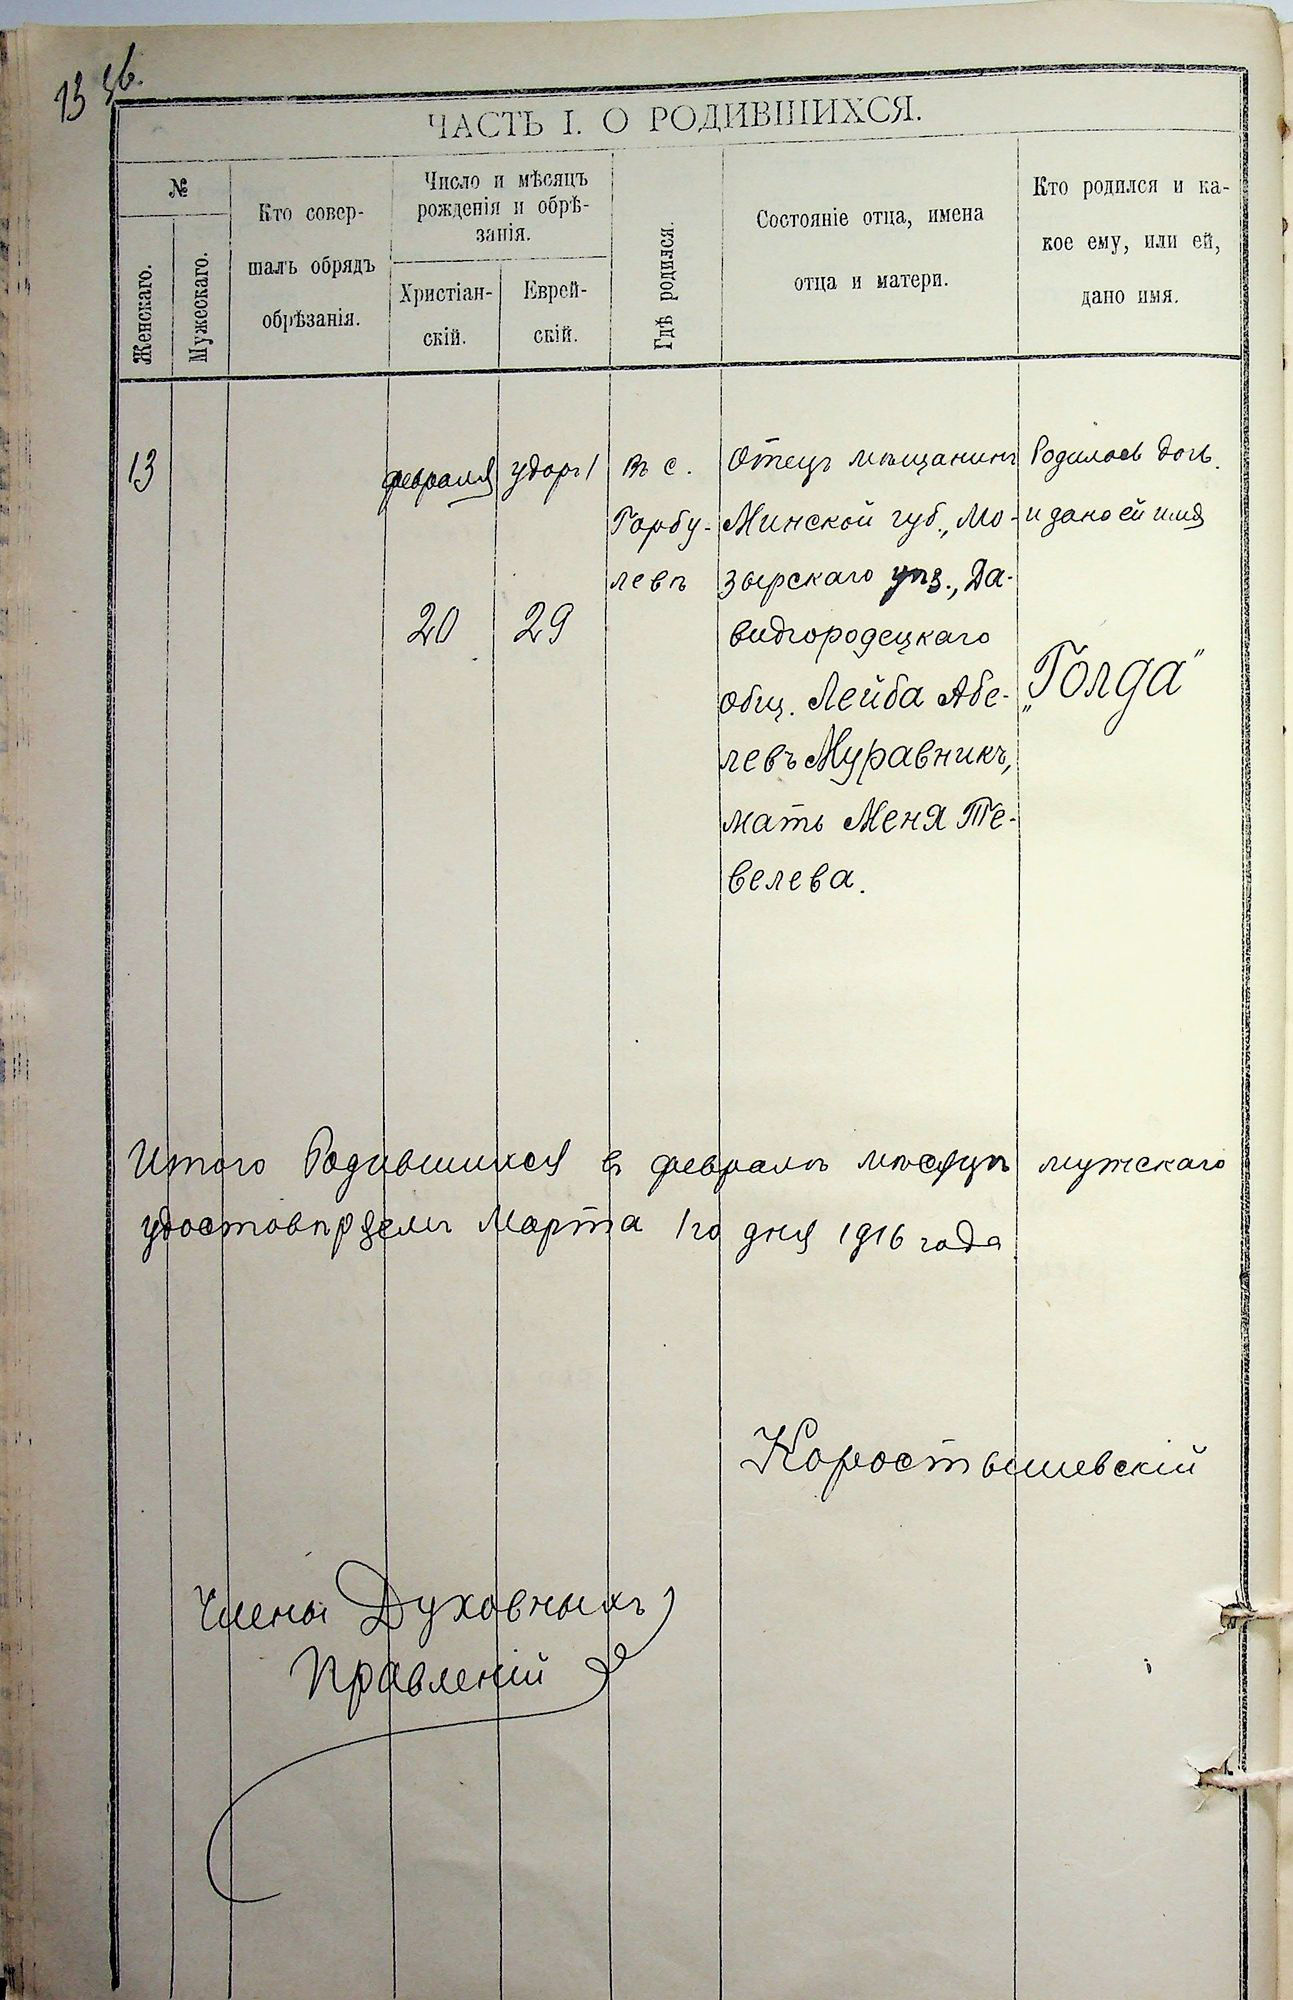 13 зв.
ЧАСТЬ I. О РОДИВШИХСЯ.
№
Женскаго.
Мужескаго.
Кто совер-
шалъ обрядъ
обрѣзанія.
Число и мѣсяцъ
рожденія и обрѣ-
занія.
Христіан-
скій.
Еврей-
скій.
Гдѣ родился.
Состояніе отца, имена
отца и матери.
Кто родился и ка-
кое ему, или ей,
дано имя.
13
февраля
20
удоръ I
29
Въ с.
Горбу-
левѣ
Отецъ мѣщанинъ
Минской губ., Мо-
зырскаго уѣз., Да-
видгородецкаго
общ. Лейба Абе-
левъ Муравникъ,
мать Меня Те-
велева.
Родилась дочь.
и дано ей имя
„Голда"
Итого Родившихся въ февралѣ мѣсяцѣ мужскаго
удостовѣряемъ Марта 1го дня 1916 года
Коростышевскій
Члены Духовныхъ
Правленій